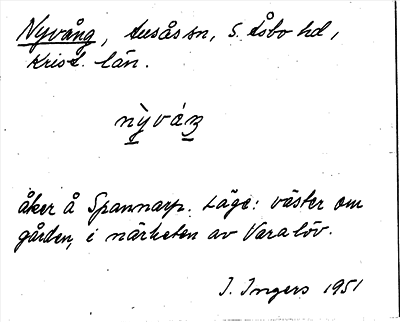 Nyvång, Ausås sn, S. Åsbo hd,
Krist. län.
nỳváŋ
åker å Spannarp. Läge: väster om
gården, i närheten av Varalöv.
I. Ingers 1951